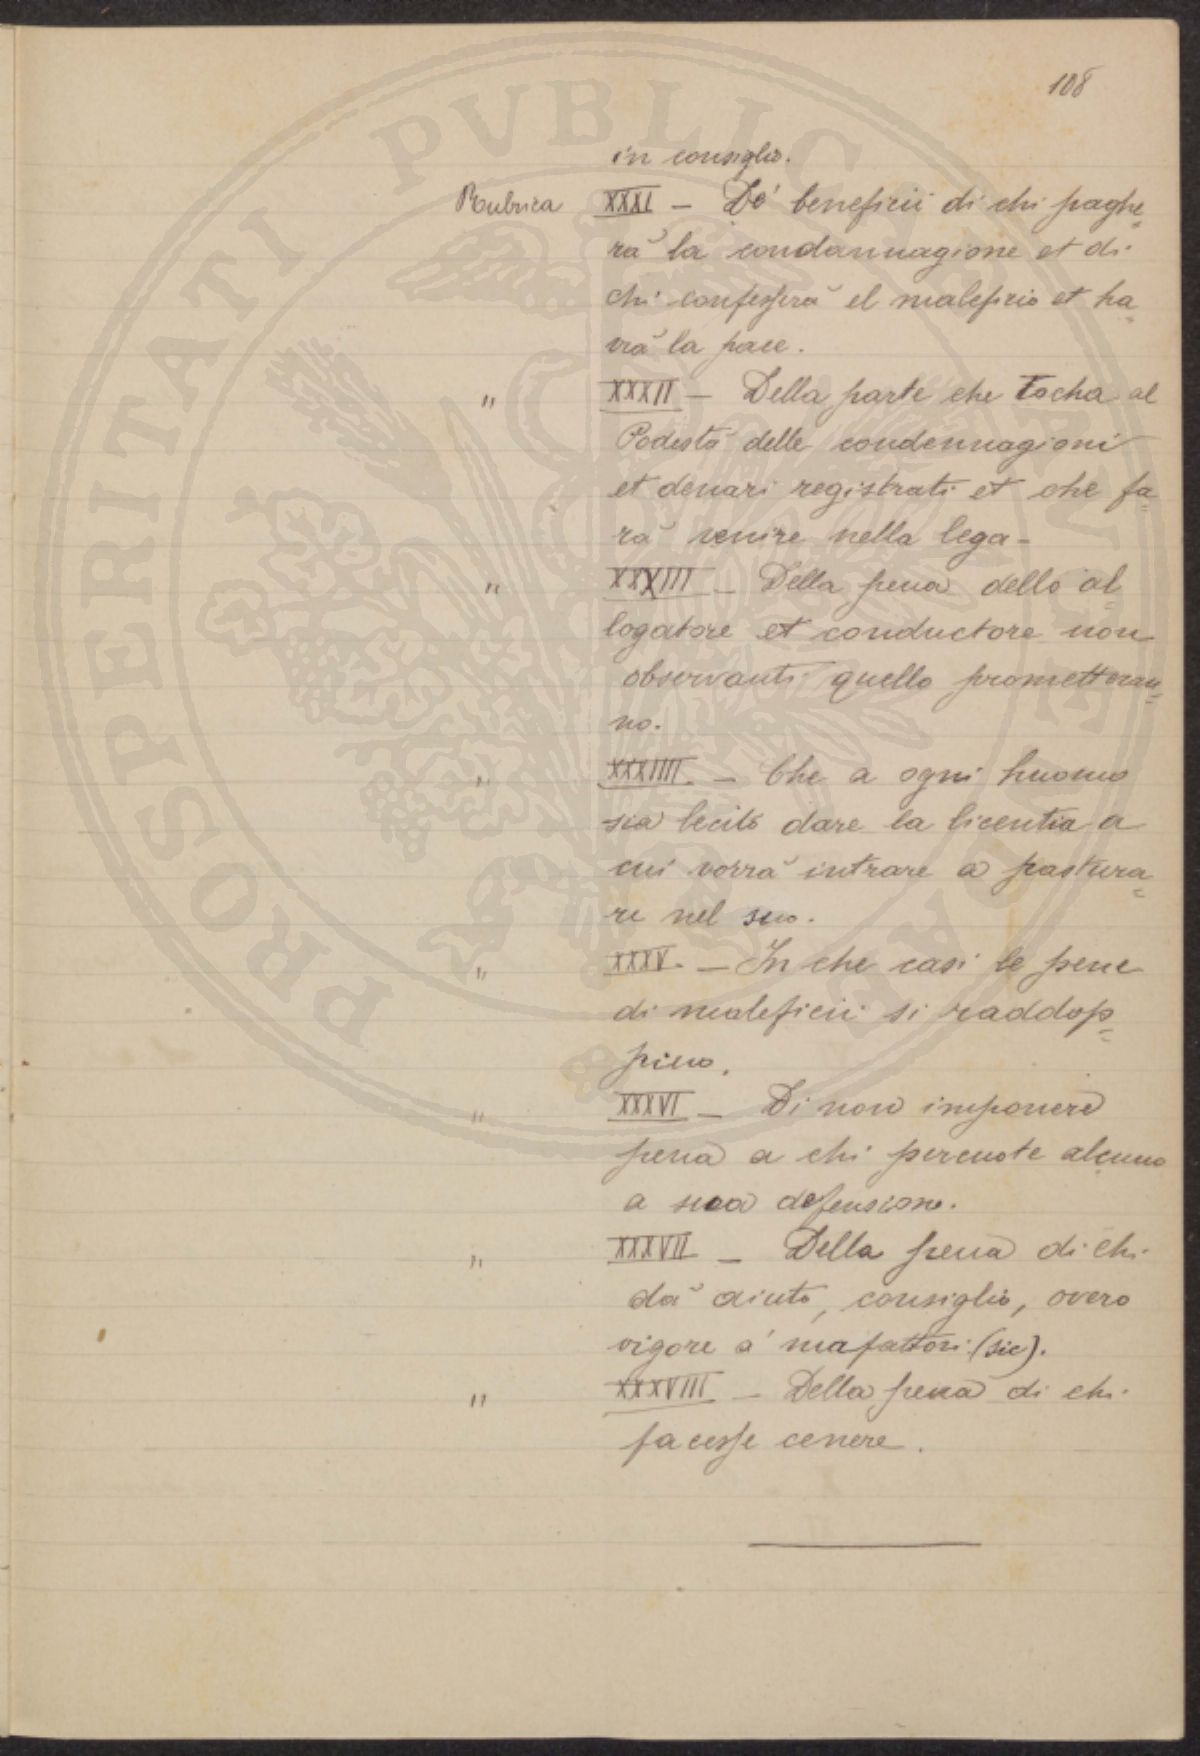 108
in consiglio.
Roubrica XXXI — De' beneficii di chi paghe=
rà la condannagione et di
chi confesserà el maleficio et ha=
vrà la pace.
" XXXII — Della parte che tocha al
Podestà delle condennagioni
et denari registrati et che fa=
rà venire nella lega —
" XXXIII — Della pena dello al=
logatore et conductore non
observanti quello prometteran=
no.
" XXXIIII. — Che a ogni huomo
sia lecito dare la licentia a
cui vorrà intrare a pastura=
re nel suo.
" XXXV. — In che casi le pene
di maleficii si raddop=
pino.
" XXXVI — Di non imponere
pena a chi percuote alcuno
a sua defensione.
" XXXVII — Della pena di chi
dà aiuto, consiglio, overo
vigore a' mafattori (sic).
" XXXVIII — Della pena di chi
facesse cenere.
PROSPERITATI PVBLICAE